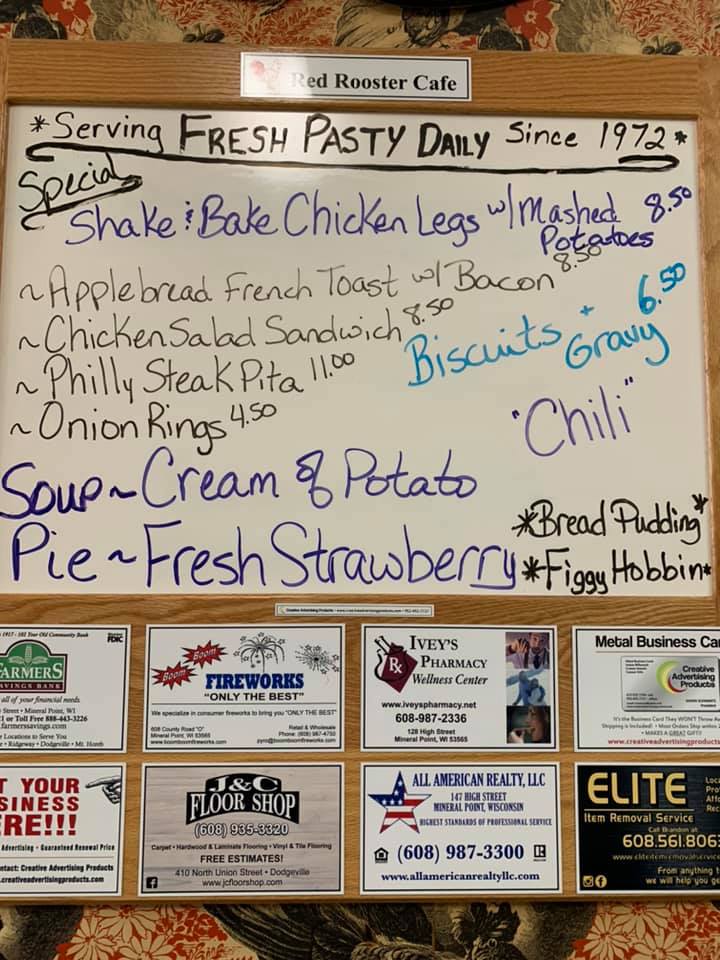 Red Rooster Cafe
*Serving FRESH PASTY DAILY Since 1972*
Special
Shake & Bake Chicken Legs w/ Mashed Potatoes 8.50
~Applebread French Toast w/ Bacon 8.50
~Chicken Salad Sandwich 8.50
Biscuits + Gravy 6.50
~Philly Steak Pita 11.00
~Onion Rings 4.50
"Chili"
Soup~Cream of Potato
*Bread Pudding*
Pie~Fresh Strawberry
*Figgy Hobbin*
1917 - 102 Your Old Community Bank
FDIC
FARMERS
SAVINGS BANK
all of your financial needs.
Street • Mineral Point, WI
or Toll Free 888-443-3226
farmerssavings.com
Locations to Serve You
• Ridgeway • Dodgeville • Mt. Horeb
Boom
Boom
FIREWORKS
"ONLY THE BEST"
We specialize in consumer fireworks to bring you "ONLY THE BEST"
608 County Road "O"
Mineral Point, WI 53565
www.boomboomfireworks.com
Retail & Wholesale
Phone: (608) 987-4750
pyro@boomboomfireworks.com
IVEY'S
PHARMACY
Wellness Center
Rx
www.iveyspharmacy.net
608-987-2336
128 High Street
Mineral Point, WI 53565
Metal Business Ca
Creative
Advertising
Products
It's the Business Card They WON'T Throw
Shipping is Included! • Most Orders Ship within
• MAKES A GREAT GIFT!
www.creativeadvertisingproducts
T YOUR
SINESS
RE!!!
Advertising • Guaranteed Renewal Price
ntact: Creative Advertising Products
.creativeadvertisingproducts.com
J&C
FLOOR SHOP
(608) 935-3320
Carpet • Hardwood & Laminate Flooring • Vinyl & Tile Flooring
FREE ESTIMATES!
410 North Union Street • Dodgeville
www.jcfloorshop.com
ALL AMERICAN REALTY, LLC
147 HIGH STREET
MINERAL POINT, WISCONSIN
HIGHEST STANDARDS OF PROFESSIONAL SERVICE
(608) 987-3300
www.allamericanrealtyllc.com
ELITE
Item Removal Service
Call Brandon at
608.561.806
www.eliteitemremovalservice
From anything
we will help you ge